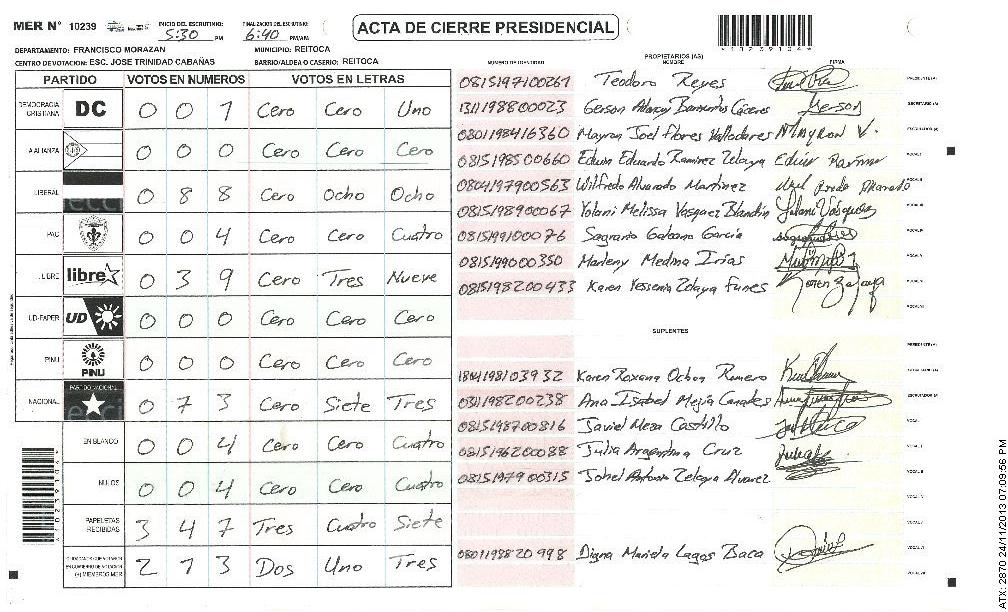 MER N° 10239
INICIO DEL ESCRUTINIO: 5:30 PM
FINALIZACION DEL ESCRUTINIO: 6:40 PM/AM
ACTA DE CIERRE PRESIDENCIAL
DEPARTAMENTO: FRANCISCO MORAZAN
MUNICIPIO: REITOCA
CENTRO DE VOTACION: ESC. JOSE TRINIDAD CABAÑAS
BARRIO/ALDEA O CASERIO: REITOCA
PARTIDO VOTOS EN NUMEROS VOTOS EN LETRAS
DEMOCRACIA CRISTIANA DC 0 0 1 Cero Cero Uno
A.ALIANZA 0 0 0 Cero Cero Cero
LIBERAL 0 8 8 Cero Ocho Ocho
PAC 0 0 4 Cero Cero Cuatro
LIBRE libre 0 3 9 Cero Tres Nueve
UD-FAPER UD 0 0 0 Cero Cero Cero
PINU PINU 0 0 0 Cero Cero Cero
NACIONAL PARTIDO NACIONAL 0 7 3 Cero Siete Tres
EN BLANCO 0 0 4 Cero Cero Cuatro
NULOS 0 0 4 Cero Cero Cuatro
PAPELETAS RECIBIDAS 3 4 7 Tres Cuatro Siete
2 1 3 Dos Uno Tres
PROPIETARIOS (AS)
NUMERO DE IDENTIDAD NOMBRE FIRMA
0815197100261 Teodoro Reyes
1311198800023 Gerson Barrientos Cáceres Gerson
0801198416360 Mayron Joel Flores Valladares Mayron V.
0815198500660 Edwin Eduardo Ramirez Zelaya Edwin
0804197900563 Wilfredo Alvarado Martinez
0815198900067 Yolani Melissa Vasquez Blandin Yolani Vásquez
0815199100076 Sagrario Galeano Garcia
0815199000350 Marleny Medina Irías
0815198200433 Karen Yessenia Zelaya Funes Karen Zelaya
SUPLENTES
1804198103932 Karen Roxana Ochoa Romero
0311198200238 Ana Isabel Mejía Canales
0815198700816 Javiel Meza Castillo
0815196200088 Julia Argentina Cruz Julia
0815197900315 Johel Antonio Zelaya Alvarez
0801198820998 Digna Mariela Lagos Baca
ATX: 2870 24/11/2013 07:09:56 PM